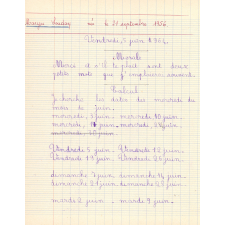 né le 21 septembre 1956
Vendredi, 5 juin 1964
Morale
Merci et s'il te plaît sont deux
petits mots que j'emploierai souvent.
Calcul
Je cherche les dates des mercredis du
mois de juin.
mercredi 3 juin mercredi 10 juin
mercredi 17 juin mercredi 24 juin
Vendredi 5 juin Vendredi 12 juin
Vendredi 19 juin Vendredi 26 juin
dimanche 7 juin dimanche 14 juin
dimanche 21 juin dimanche 28 juin
mardi 2 juin mardi 9 juin